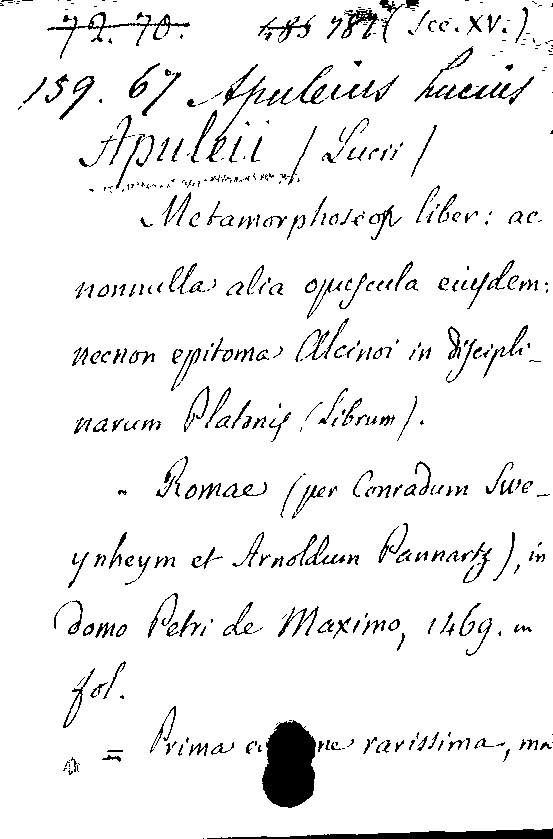 72. 70. 485 787 (Sce. XV.)
159. 67 Apuleius Lucius
Apuleii / Lucii /
Metamorphoseo liber: ac
nonnulla alia opuscula eiusdem:
necnon epitoma Alcinoi in discipli-
narum Platonis (Librum).
- Romae (per Conradum Swe-
ynheym et Arnoldum Pannartz), in
domo Petri de Maximo, 1469. in
fol.
= Prima rarissima, ma